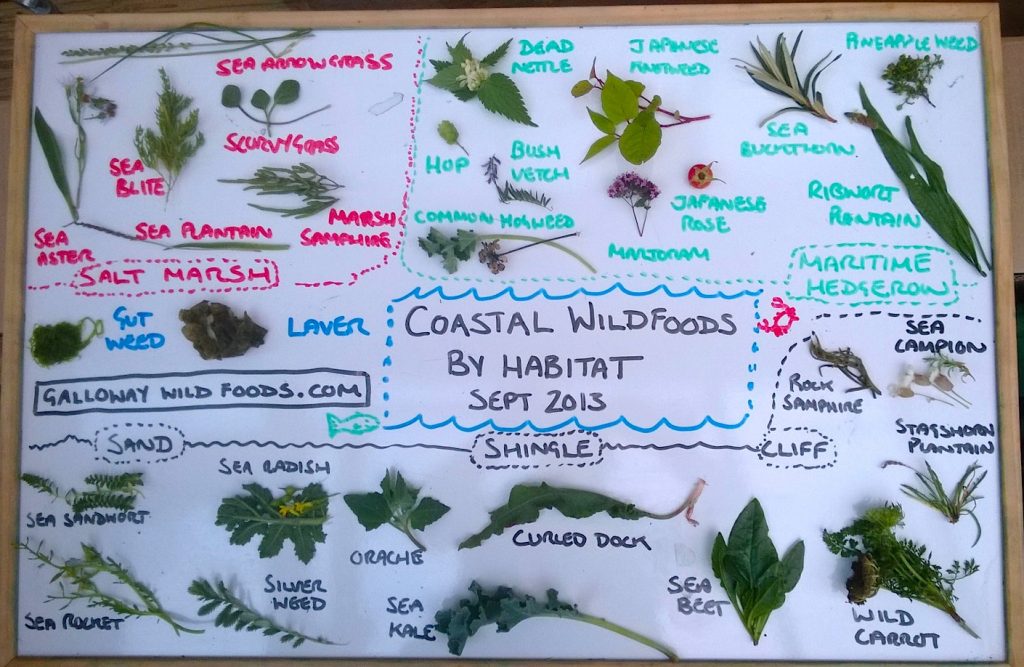 SEA ARROWGRASS
SCURVYGRASS
SEA
BLITE
SEA PLANTAIN
MARSH
SAMPHIRE
SEA
ASTER
SALT MARSH
DEAD
NETTLE
JAPANESE
KNOTWEED
PINEAPPLE WEED
SEA
BUCKTHORN
HOP
BUSH
VETCH
JAPANESE
ROSE
RIBWORT
PLANTAIN
COMMON HOGWEED
MARJORAM
MARITIME
HEDGEROW
GUT
WEED
LAVER
GALLOWAY WILD FOODS.COM
COASTAL WILDFOODS
BY HABITAT
SEPT 2013
SEA
CAMPION
ROCK
SAMPHIRE
STAGSHORN
PLANTAIN
SAND
SHINGLE
CLIFF
SEA RADISH
SEA SANDWORT
ORACHE
CURLED DOCK
SILVER
WEED
SEA ROCKET
SEA
KALE
SEA
BEET
WILD
CARROT